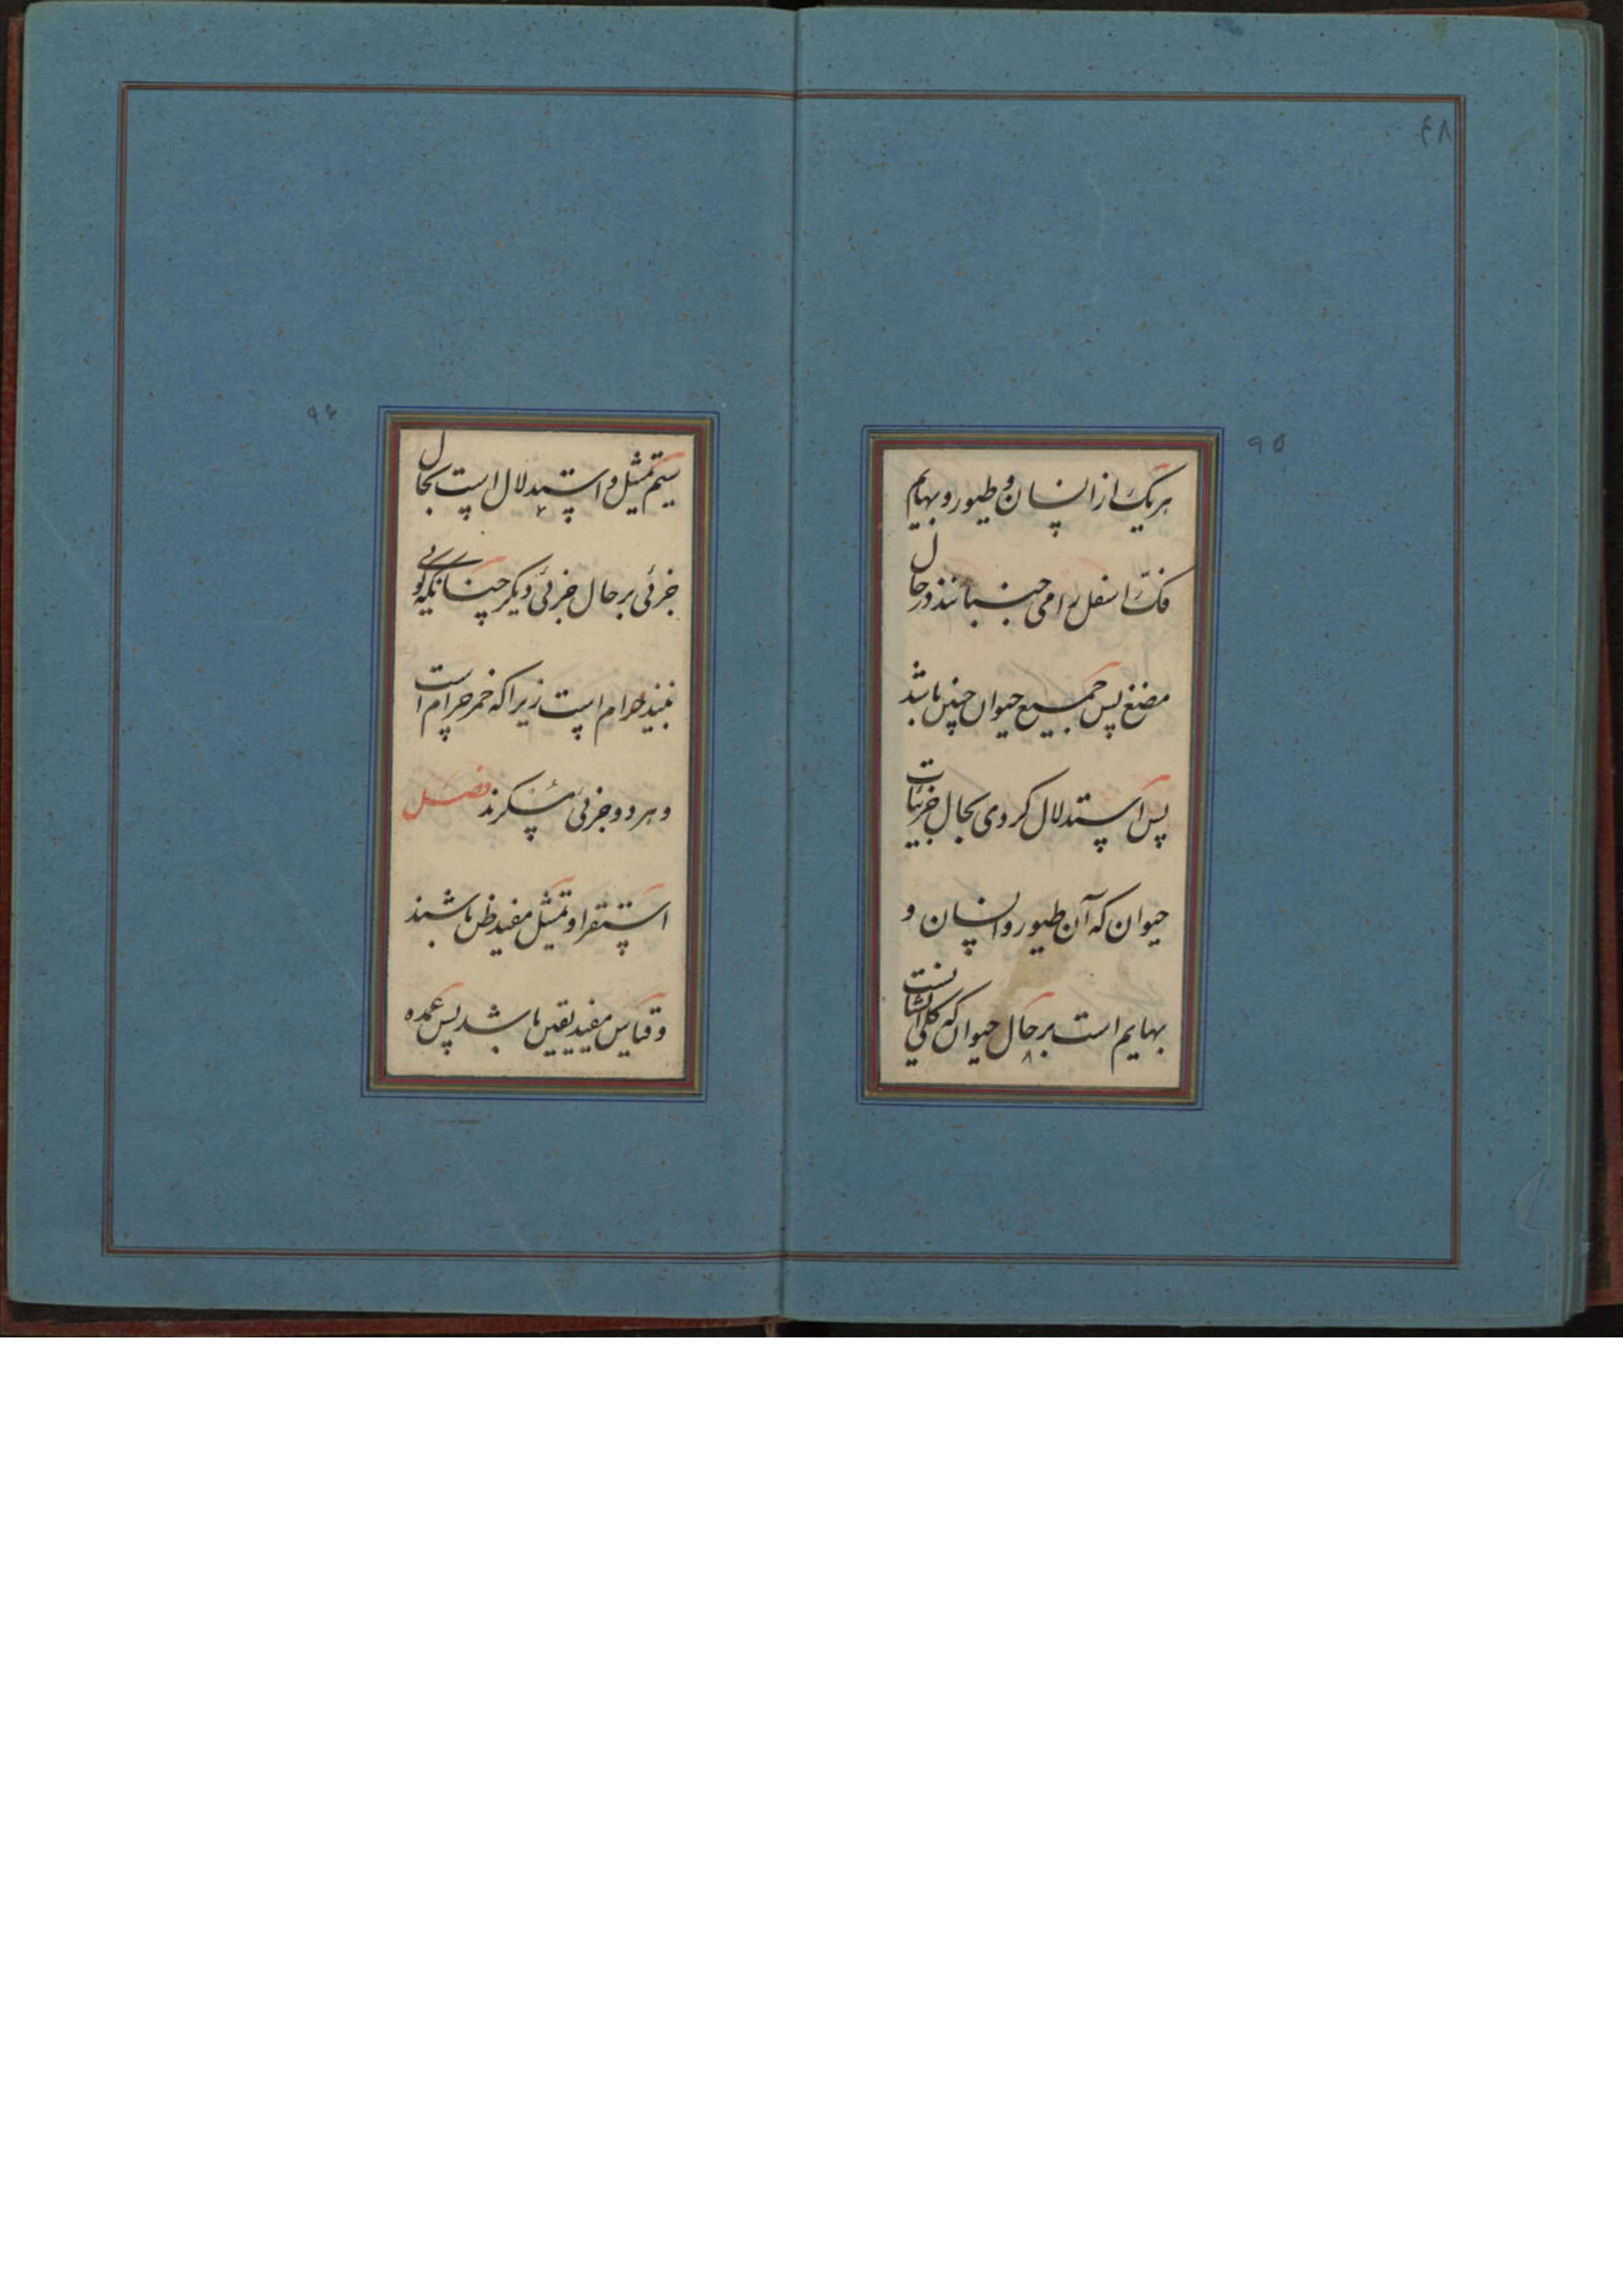 ۴۸
۹۵
هر یک از انسان و طیور و بهایم
فک اسفل را می جنبانند در حال
مضغ پس جمیع حیوان چنین باشد
پس استدلال کردی بحال جزئیات
حیوان که آن طیور و انسان و
بهایم است بر حال حیوان که کلی ایشانست
۹۶
سیم تمثیل و استدلال است بحال
جزئی بر حال جزئی دیگر چنانکه گویی
نبیذ حرام است زیرا که خمر حرام است
و هر دو جزئی مسکرند فصل
استقرا و تمثیل مفید ظن باشند
و قیاس مفید یقین باشد پس عمده